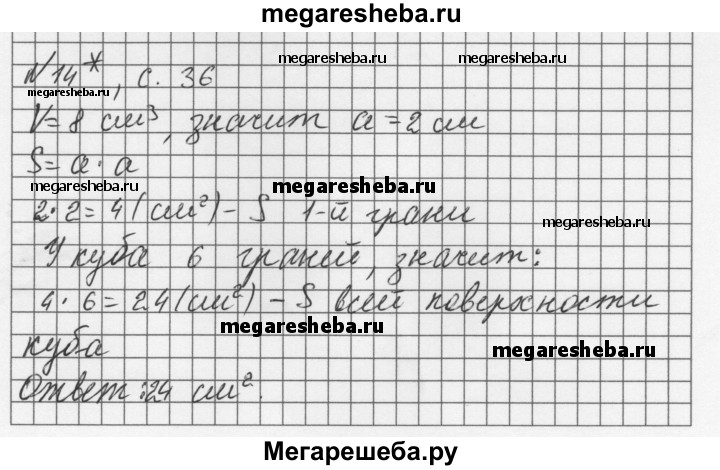 megaresheba.ru
N14*, с. 36
megaresheba.ru
megaresheba.ru
megaresheba.ru
V=8 см³, значит a=2 см
S=a·a
megaresheba.ru
megaresheba.ru
2·2=4(см²)-S 1-й грани
megaresheba.ru
У куба 6 граней, значит:
4·6=24(см²)-S всей поверхности
megaresheba.ru
куба
megaresheba.ru
Ответ:24 см².
Мегарешеба.ру